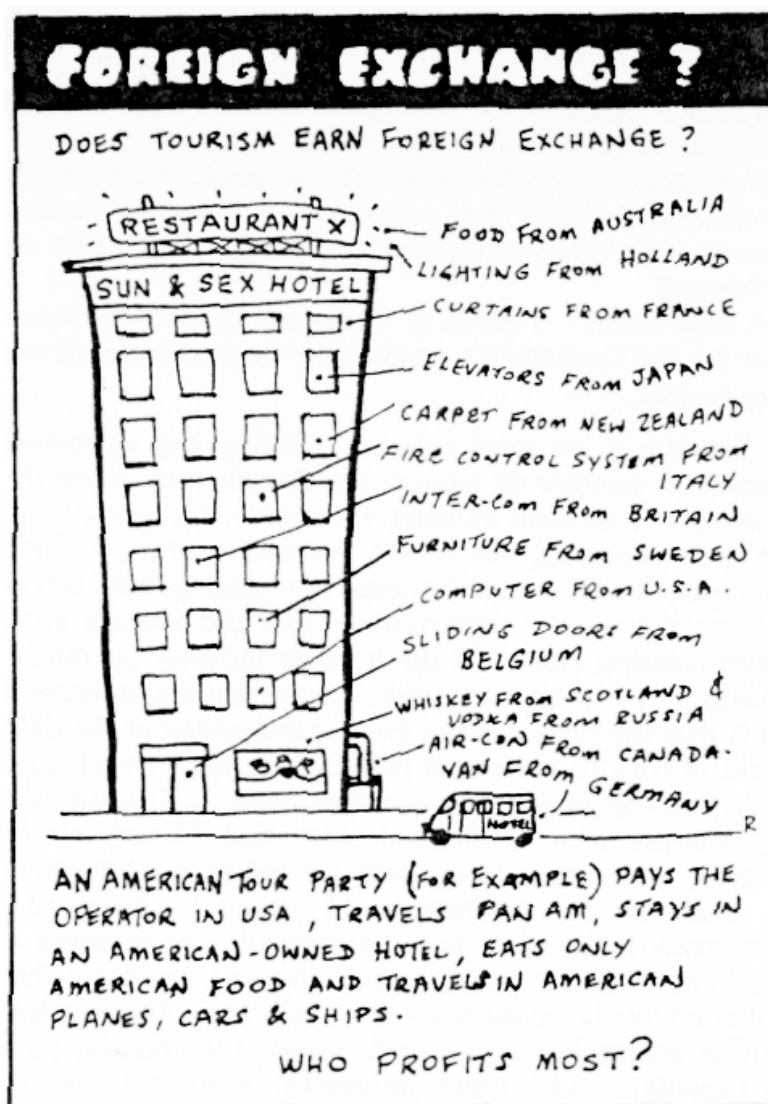 FOREIGN EXCHANGE?
DOES TOURISM EARN FOREIGN EXCHANGE?
RESTAURANT X
FOOD FROM AUSTRALIA
LIGHTING FROM HOLLAND
SUN & SEX HOTEL
CURTAINS FROM FRANCE
ELEVATORS FROM JAPAN
CARPET FROM NEW ZEALAND
FIRE CONTROL SYSTEM FROM
ITALY
INTER-COM FROM BRITAIN
FURNITURE FROM SWEDEN
COMPUTER FROM U.S.A.
SLIDING DOORS FROM
BELGIUM
WHISKEY FROM SCOTLAND &
VODKA FROM RUSSIA
BAR
AIR-CON FROM CANADA.
VAN FROM
GERMANY
HOTEL
R
AN AMERICAN TOUR PARTY (FOR EXAMPLE) PAYS THE
OPERATOR IN USA, TRAVELS PAN AM, STAYS IN
AN AMERICAN-OWNED HOTEL, EATS ONLY
AMERICAN FOOD AND TRAVELS IN AMERICAN
PLANES, CARS & SHIPS.
WHO PROFITS MOST?